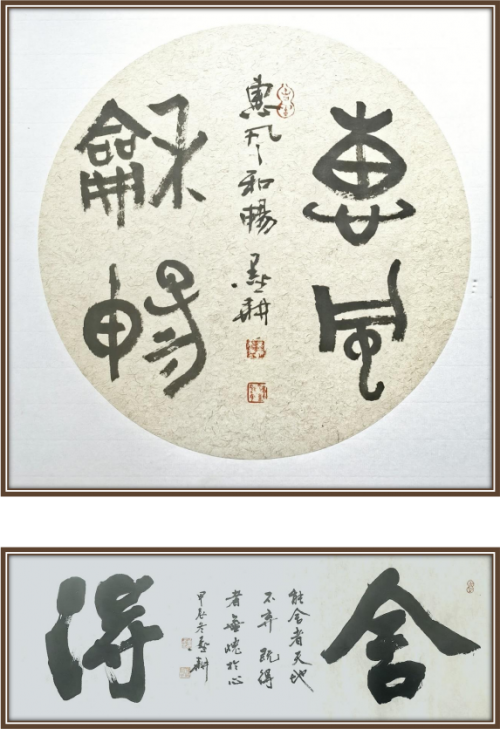 惠風
惠风和暢 墨耕
龢暢
舍
能舍者天地
不弃 得
者無愧於心
甲辰冬墨耕
得